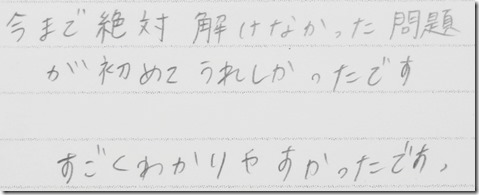 今まで絶対解けなかった問題
が初めてうれしかったです
すごくわかりやすかったです。